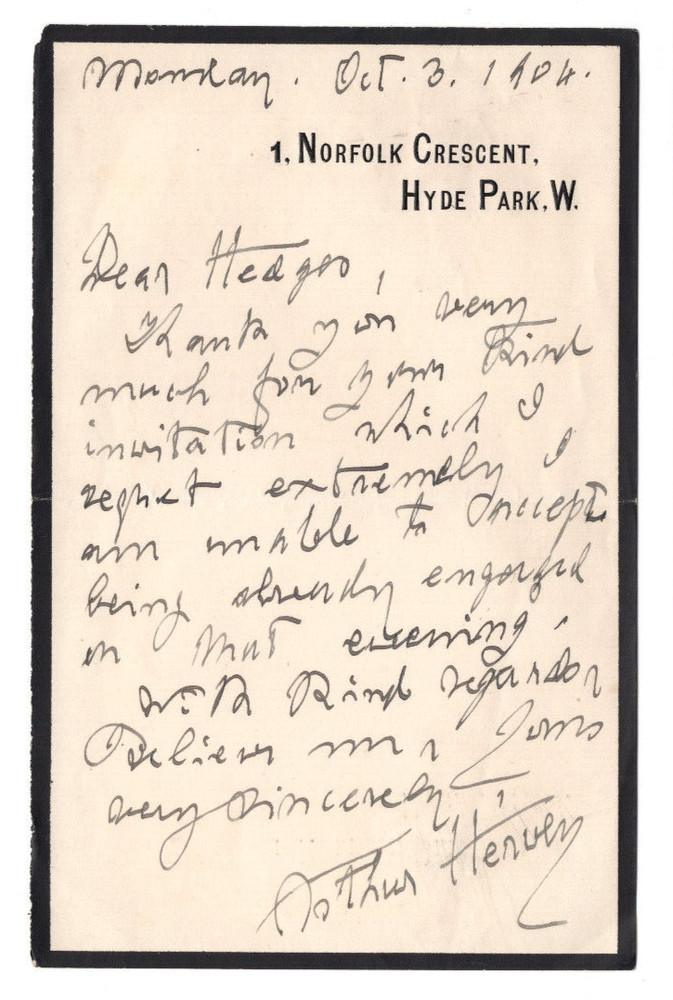 Monday. Oct. 3. 1904.
1, NORFOLK CRESCENT,
HYDE PARK, W.
Dear Hedges,
Thank you very
much for your kind
invitation which I
regret extremely I
am unable to accept
being already engaged
on that evening.
With kind regards,
Believe me, Yours
very sincerely,
Arthur Hervey